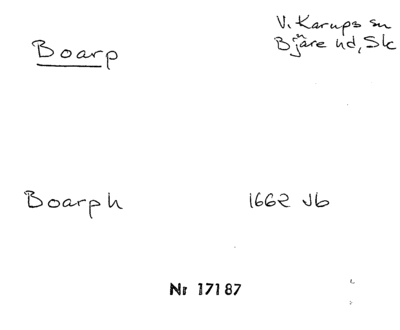 V. Karups sn
Boarp
Bjäre hd, Sk
Boarph 1662 Jb
Nr 17187